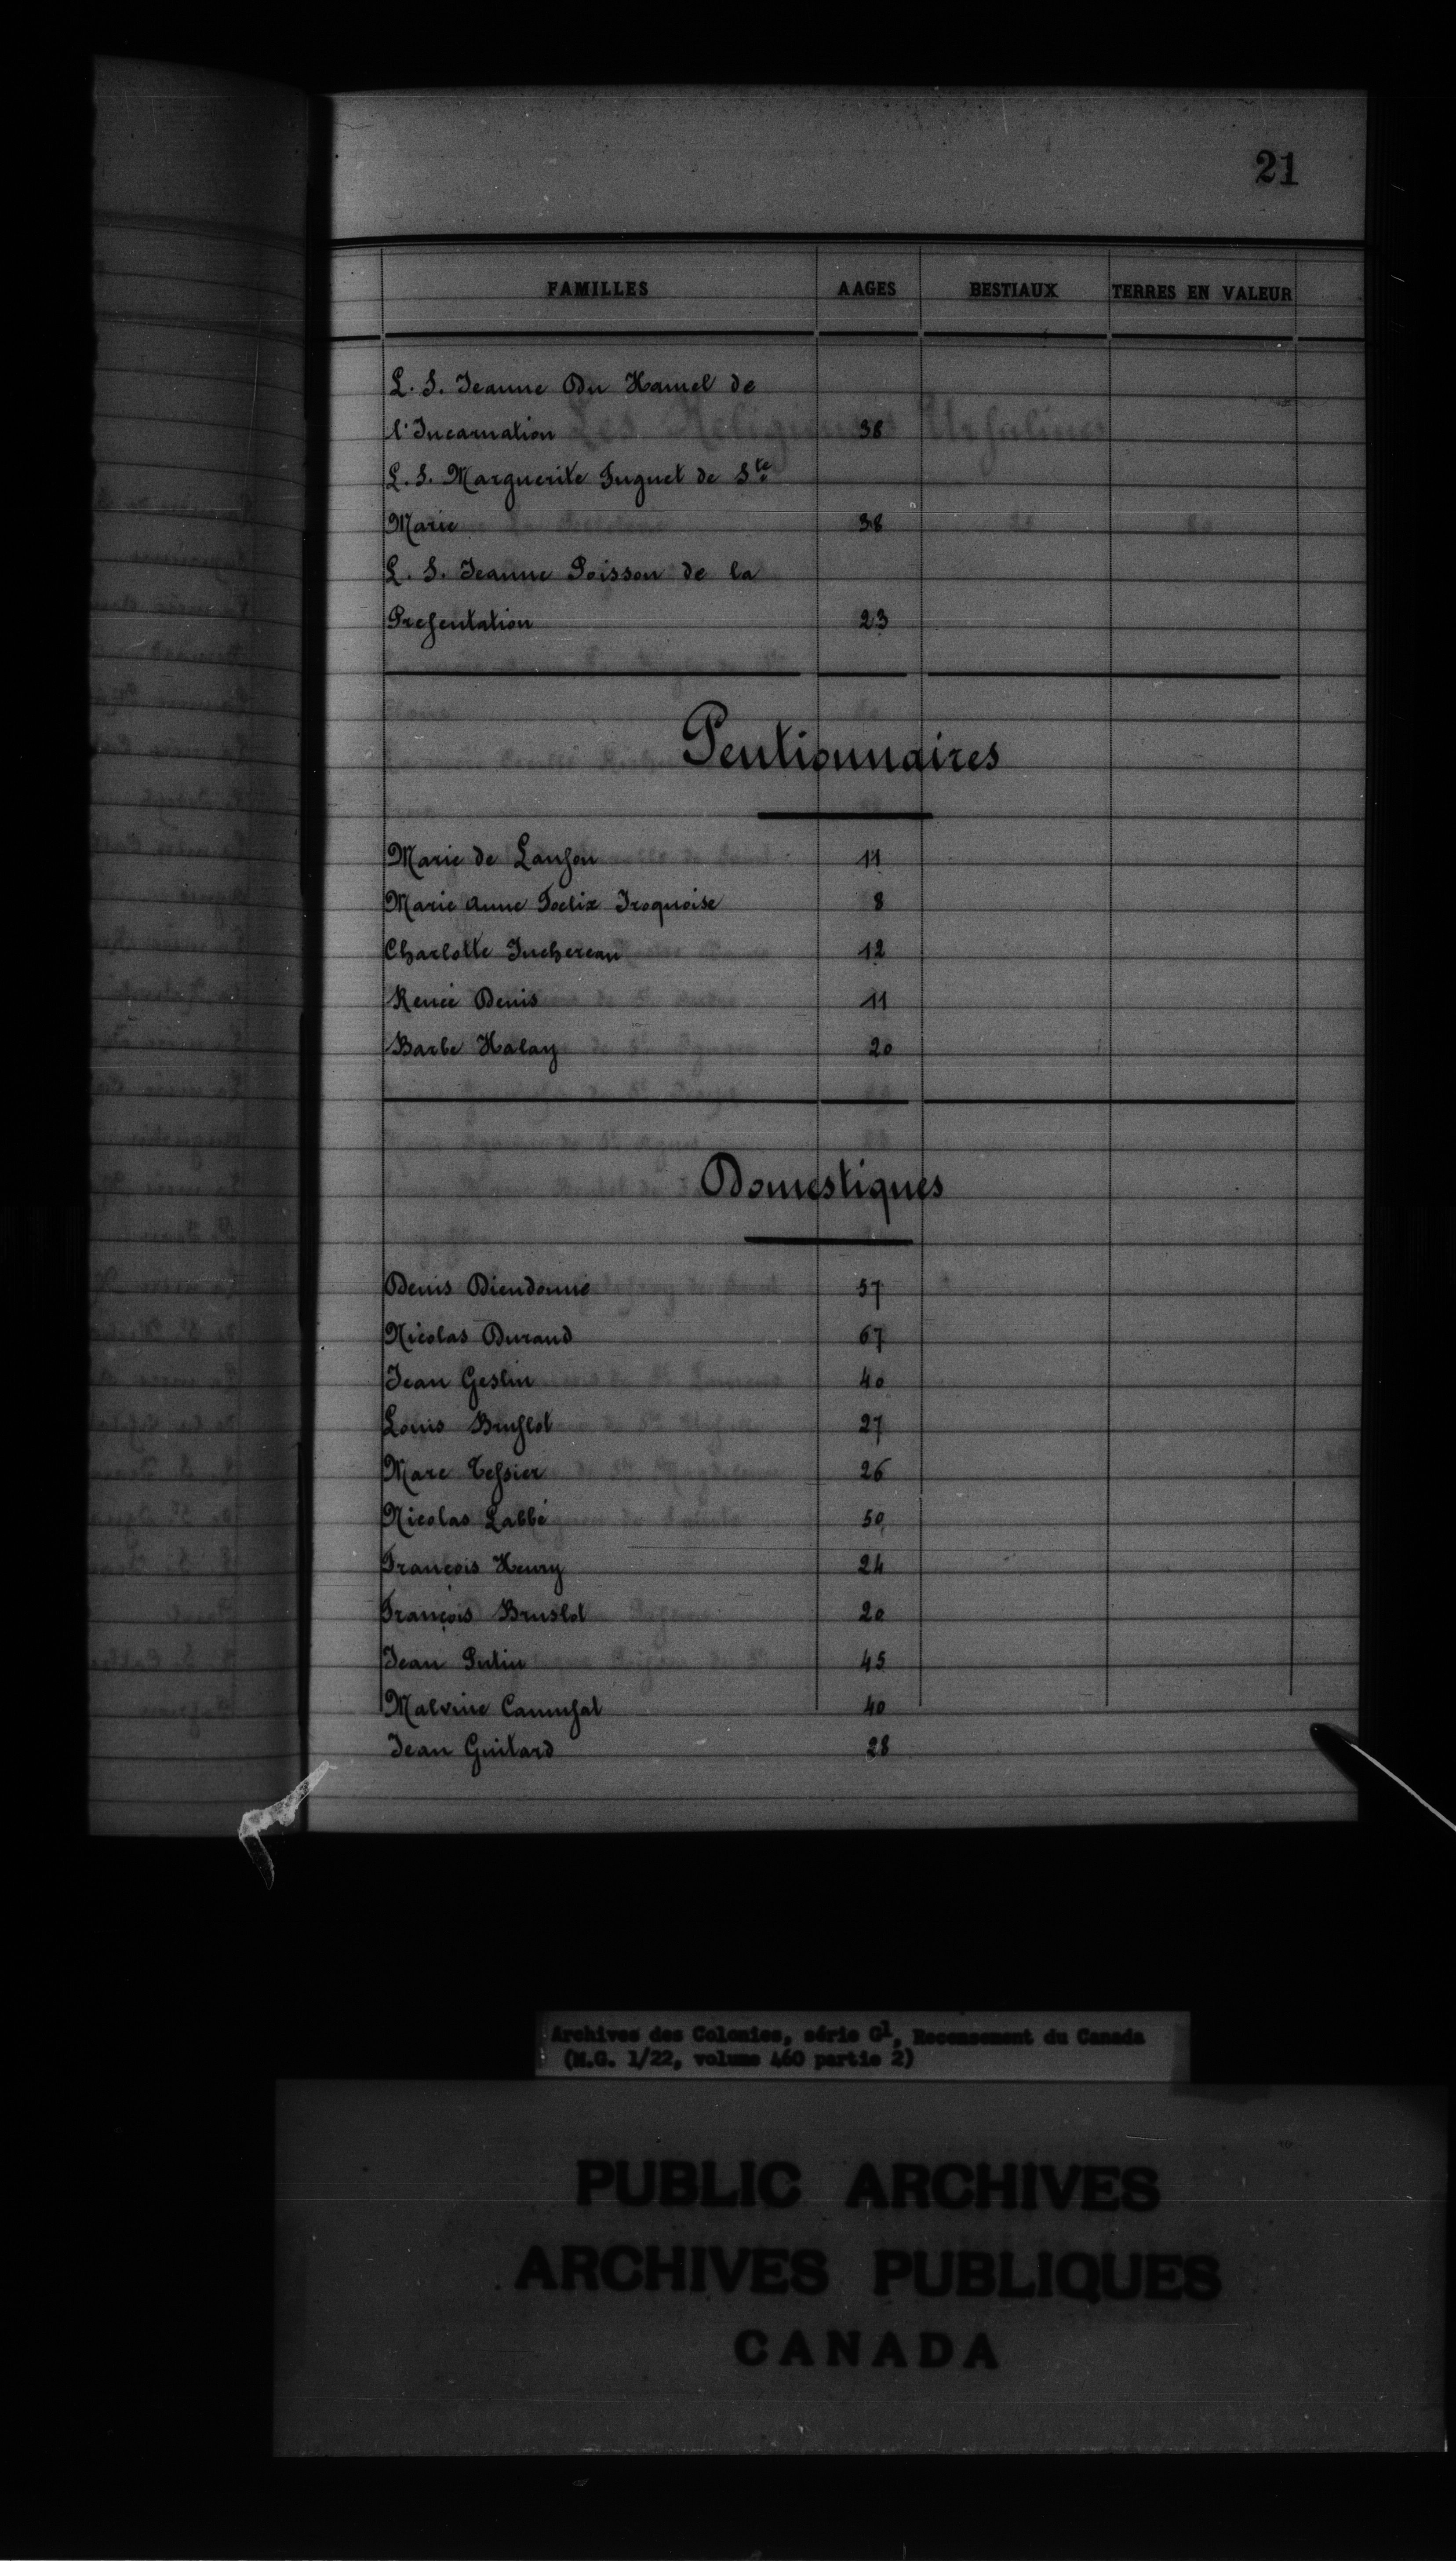 21
FAMILLES AAGES BESTIAUX TERRES EN VALEUR
L. S. Jeanne Du Hamel de
l'Incarnation 38
L. S. Marguerite Fuguet de Ste
Marie 38
L. S. Jeanne Poisson de la
Presentation 23
Pentionnaires
Marie de Lauson 11
Marie Anne Foelix Iroquoise 8
Charlotte Juchereau 12
Renée Denis 11
Barbe Halay 20
Domestiques
Denis Dieudonné 57
Nicolas Durand 67
Jean Geslin 40
Louis Bruslot 27
Marc Tessier 26
Nicolas Labbé 50
François Henry 24
François Bruslot 20
Jean Putin 45
Jean Guitard 28
40
Archives des Colonies, série G1, Recensement du Canada
(M.G. 1/22, volume 460 partie 2)
PUBLIC ARCHIVES
ARCHIVES PUBLIQUES
CANADA